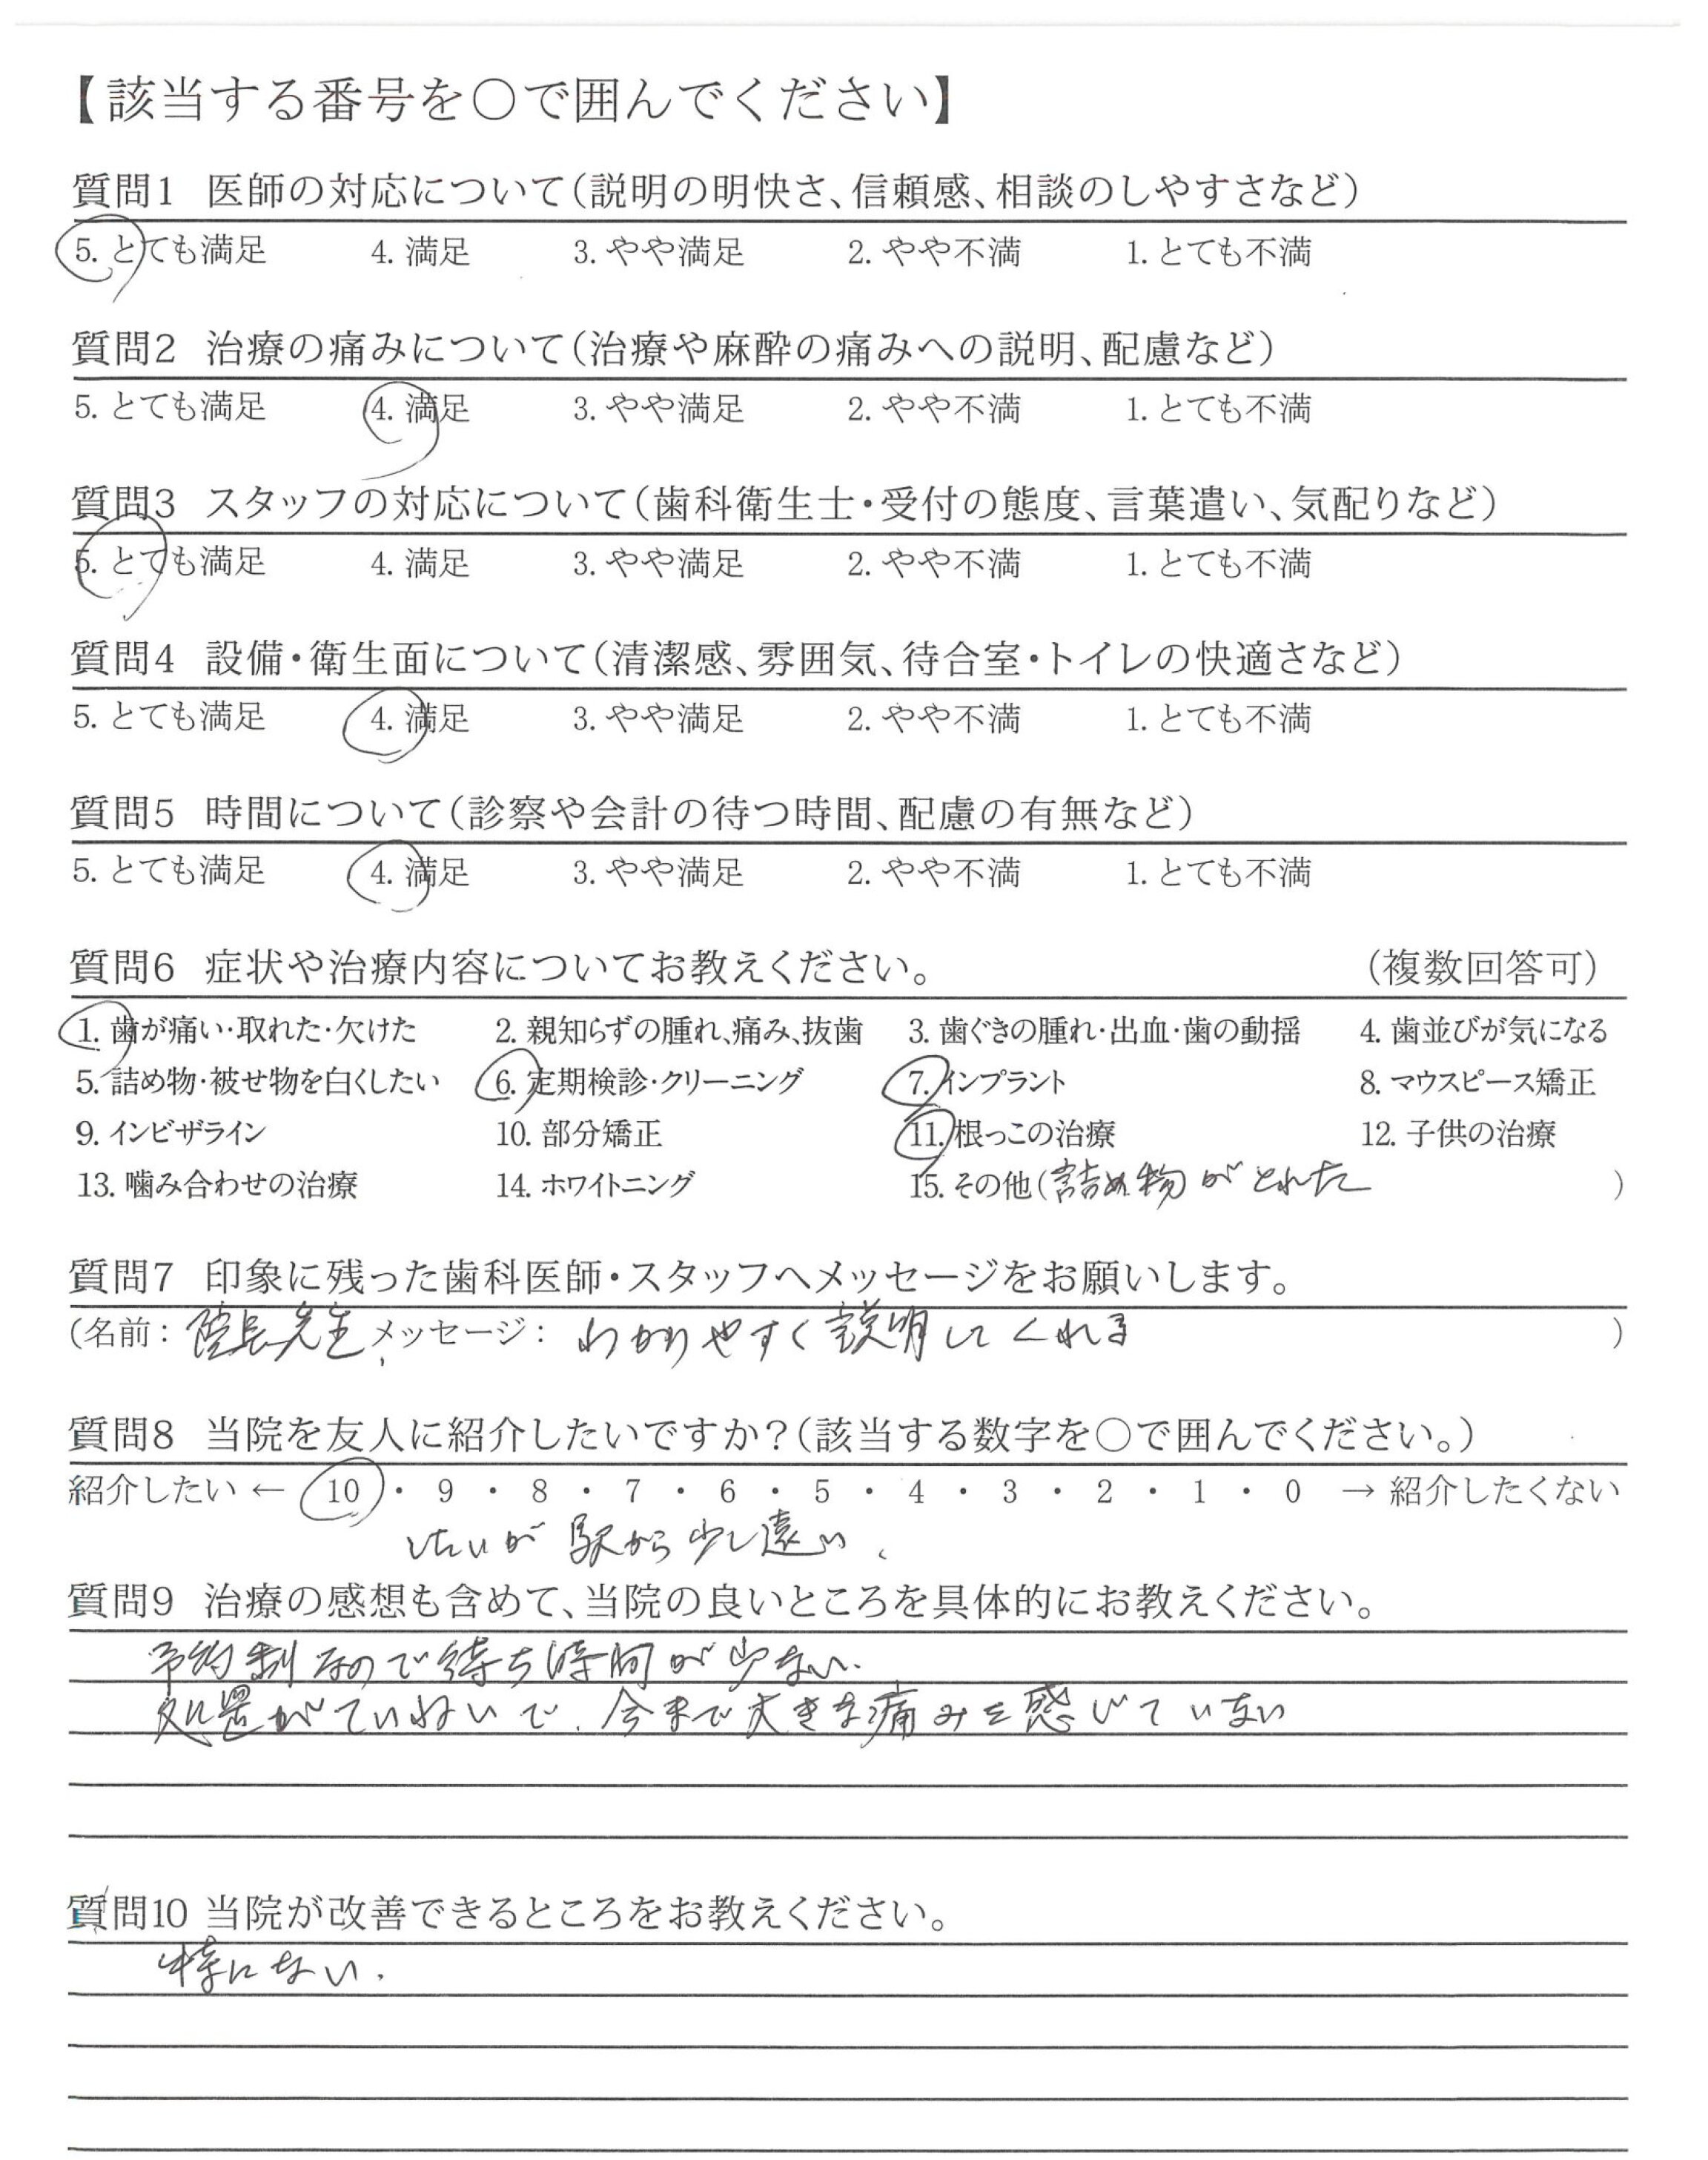 【該当する番号を○で囲んでください】
質問1 医師の対応について（説明の明快さ、信頼感、相談のしやすさなど）
5. とても満足 4. 満足 3. やや満足 2. やや不満 1. とても不満
質問2 治療の痛みについて（治療や麻酔の痛みへの説明、配慮など）
5. とても満足 4. 満足 3. やや満足 2. やや不満 1. とても不満
質問3 スタッフの対応について（歯科衛生士・受付の態度、言葉遣い、気配りなど）
5. とても満足 4. 満足 3. やや満足 2. やや不満 1. とても不満
質問4 設備・衛生面について（清潔感、雰囲気、待合室・トイレの快適さなど）
5. とても満足 4. 満足 3. やや満足 2. やや不満 1. とても不満
質問5 時間について（診察や会計の待つ時間、配慮の有無など）
5. とても満足 4. 満足 3. やや満足 2. やや不満 1. とても不満
質問6 症状や治療内容についてお教えください。 （複数回答可）
1. 歯が痛い・取れた・欠けた 2. 親知らずの腫れ、痛み、抜歯 3. 歯ぐきの腫れ・出血・歯の動揺 4. 歯並びが気になる
5. 詰め物・被せ物を白くしたい 6. 定期検診・クリーニング 7. インプラント 8. マウスピース矯正
9. インビザライン 10. 部分矯正 11. 根っこの治療 12. 子供の治療
13. 噛み合わせの治療 14. ホワイトニング 15. その他（詰め物がとれた ）
質問7 印象に残った歯科医師・スタッフへメッセージをお願いします。
（名前：院長先生 メッセージ：わかりやすく説明してくれる ）
質問8 当院を友人に紹介したいですか？（該当する数字を○で囲んでください。）
紹介したい ← 10 ・ 9 ・ 8 ・ 7 ・ 6 ・ 5 ・ 4 ・ 3 ・ 2 ・ 1 ・ 0 → 紹介したくない
したいが駅から少し遠い、
質問9 治療の感想も含めて、当院の良いところを具体的にお教えください。
予約制なので待ち時間が少ない.
処置がていねいで、今まで大きな痛みを感じていない
質問10 当院が改善できるところをお教えください。
特にない.